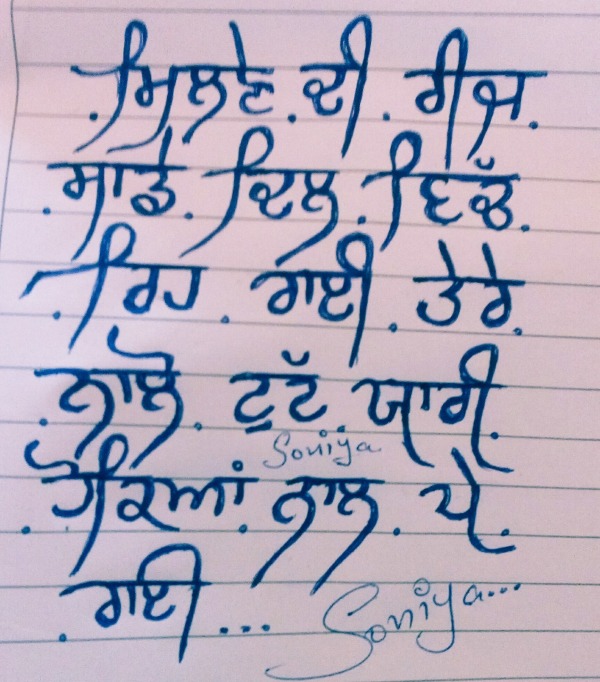 .ਮਿਲਣੇ.ਦੀ.ਰੀਜ.
.ਸਾਡੇ.ਦਿਲ.ਵਿੱਚ.
.ਰਿਹ.ਗਈ.ਤੇਰੇ.
.ਨਾਲੋ.ਟੁੱਟ.ਯਾਰੀ.
Soniya
.ਹੌਕਿਆਂ.ਨਾਲ.ਪੈ.
.ਗਈ...
Soniya...